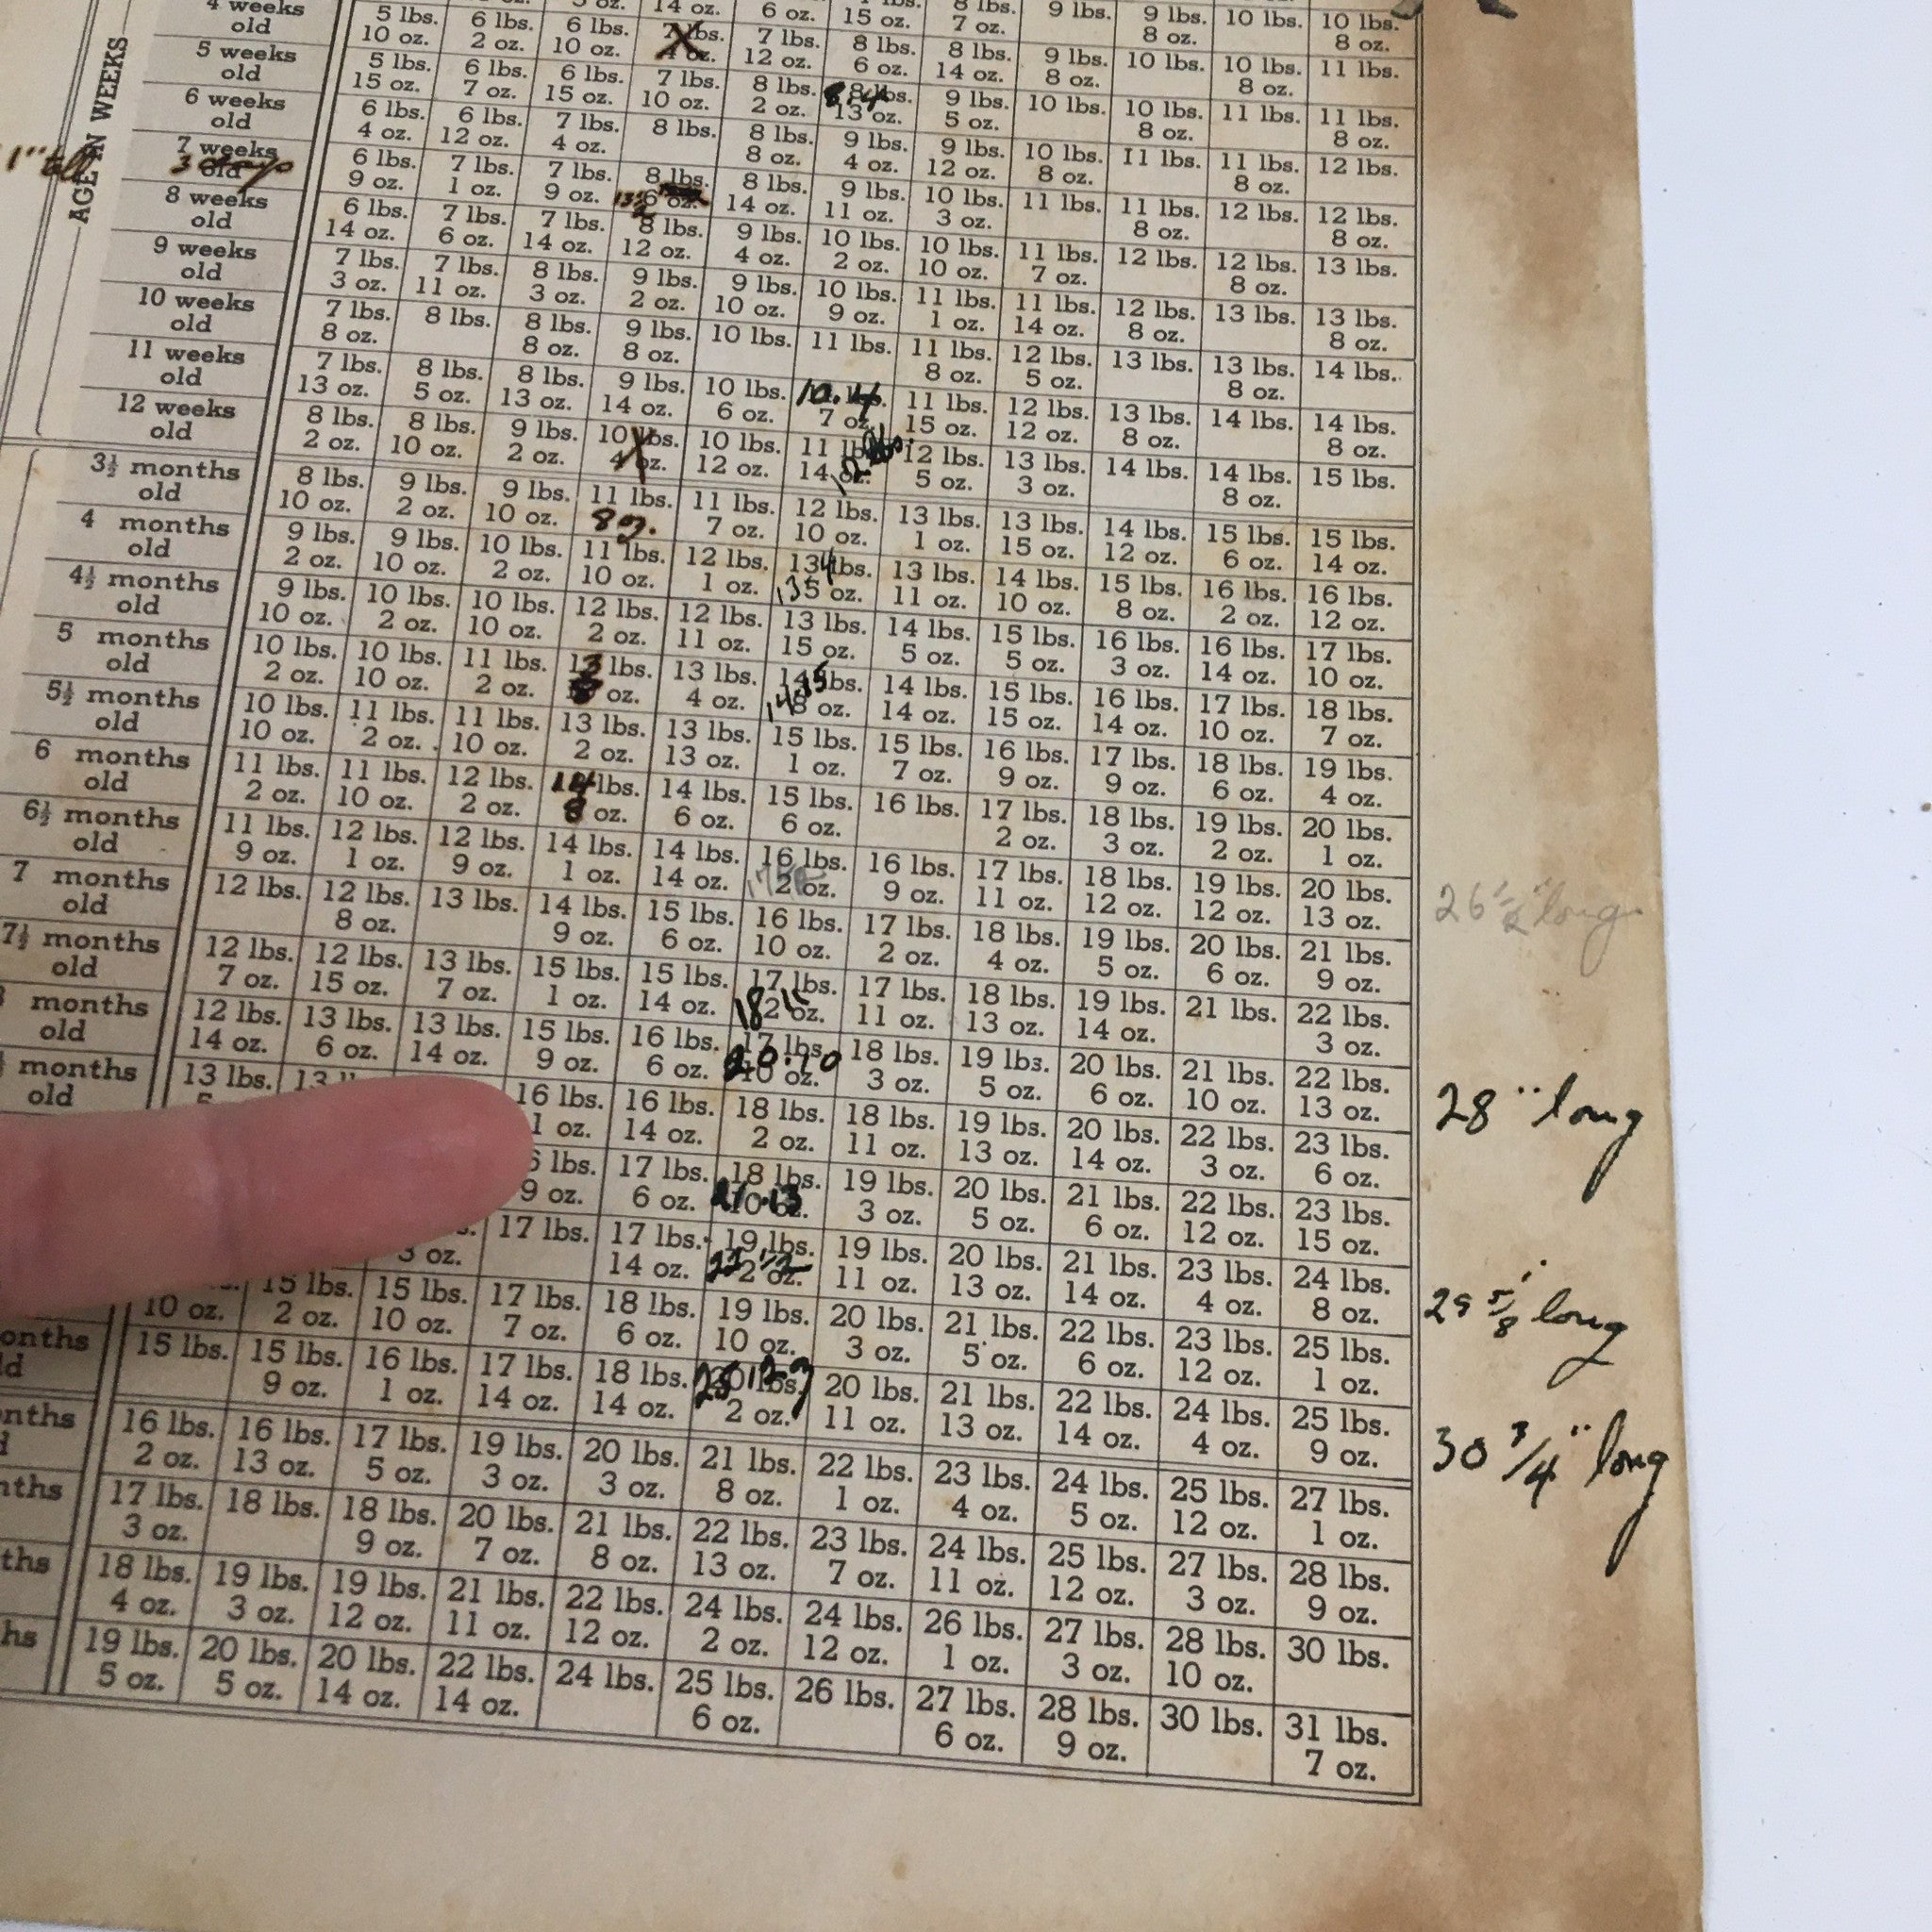 4 weeks old 5 lbs. 10 oz. 6 lbs. 2 oz. 6 lbs. 10 oz. 7 lbs. 4 oz. 7 lbs. 12 oz. 8 lbs. 6 oz. 8 lbs. 14 oz. 9 lbs. 8 oz. 10 lbs. 10 lbs. 8 oz. 11 lbs.
5 weeks old 5 lbs. 15 oz. 6 lbs. 7 oz. 6 lbs. 15 oz. 7 lbs. 10 oz. 8 lbs. 2 oz. 8 lbs. 13 oz. 9 lbs. 5 oz. 10 lbs. 10 lbs. 8 oz. 11 lbs. 11 lbs. 8 oz.
6 weeks old 6 lbs. 4 oz. 6 lbs. 12 oz. 7 lbs. 4 oz. 8 lbs. 8 lbs. 8 oz. 9 lbs. 4 oz. 9 lbs. 12 oz. 10 lbs. 8 oz. 11 lbs. 11 lbs. 8 oz. 12 lbs.
7 weeks old 6 lbs. 9 oz. 7 lbs. 1 oz. 7 lbs. 9 oz. 8 lbs. 6 oz. 8 lbs. 14 oz. 9 lbs. 11 oz. 10 lbs. 3 oz. 11 lbs. 11 lbs. 8 oz. 12 lbs. 12 lbs. 8 oz.
AGE IN WEEKS
8 weeks old 6 lbs. 14 oz. 7 lbs. 6 oz. 7 lbs. 14 oz. 8 lbs. 12 oz. 9 lbs. 4 oz. 10 lbs. 2 oz. 10 lbs. 10 oz. 11 lbs. 7 oz. 12 lbs. 12 lbs. 8 oz. 13 lbs.
9 weeks old 7 lbs. 3 oz. 7 lbs. 11 oz. 8 lbs. 3 oz. 9 lbs. 2 oz. 9 lbs. 10 oz. 10 lbs. 9 oz. 11 lbs. 1 oz. 11 lbs. 14 oz. 12 lbs. 8 oz. 13 lbs. 13 lbs. 8 oz.
10 weeks old 7 lbs. 8 oz. 8 lbs. 8 lbs. 8 oz. 9 lbs. 8 oz. 10 lbs. 11 lbs. 11 lbs. 8 oz. 12 lbs. 5 oz. 13 lbs. 13 lbs. 8 oz. 14 lbs.
11 weeks old 7 lbs. 13 oz. 8 lbs. 5 oz. 8 lbs. 13 oz. 9 lbs. 14 oz. 10 lbs. 6 oz. 10.4 7 oz. 11 lbs. 15 oz. 12 lbs. 12 oz. 13 lbs. 8 oz. 14 lbs. 14 lbs. 8 oz.
12 weeks old 8 lbs. 2 oz. 8 lbs. 10 oz. 9 lbs. 2 oz. 10 lbs. 4 oz. 10 lbs. 12 oz. 11 lbs. 14 oz. 12 lbs. 5 oz. 13 lbs. 3 oz. 14 lbs. 14 lbs. 8 oz. 15 lbs.
3½ months old 8 lbs. 10 oz. 9 lbs. 2 oz. 9 lbs. 10 oz. 11 lbs. 11 lbs. 7 oz. 12 lbs. 10 oz. 13 lbs. 1 oz. 13 lbs. 15 oz. 14 lbs. 12 oz. 15 lbs. 6 oz. 15 lbs. 14 oz.
4 months old 9 lbs. 2 oz. 9 lbs. 10 oz. 10 lbs. 2 oz. 11 lbs. 10 oz. 12 lbs. 1 oz. 13 lbs. 5 oz. 13 lbs. 11 oz. 14 lbs. 10 oz. 15 lbs. 8 oz. 16 lbs. 2 oz. 16 lbs. 12 oz.
4½ months old 9 lbs. 10 oz. 10 lbs. 2 oz. 10 lbs. 10 oz. 12 lbs. 2 oz. 12 lbs. 11 oz. 13 lbs. 15 oz. 14 lbs. 5 oz. 15 lbs. 5 oz. 16 lbs. 3 oz. 16 lbs. 14 oz. 17 lbs. 10 oz.
5 months old 10 lbs. 2 oz. 10 lbs. 10 oz. 11 lbs. 2 oz. 13 lbs. oz. 13 lbs. 4 oz. 14 lbs. 8 oz. 14 lbs. 14 oz. 15 lbs. 15 oz. 16 lbs. 14 oz. 17 lbs. 10 oz. 18 lbs. 7 oz.
5½ months old 10 lbs. 10 oz. 11 lbs. 2 oz. 11 lbs. 10 oz. 13 lbs. 2 oz. 13 lbs. 13 oz. 15 lbs. 1 oz. 15 lbs. 7 oz. 16 lbs. 9 oz. 17 lbs. 9 oz. 18 lbs. 6 oz. 19 lbs. 4 oz.
6 months old 11 lbs. 2 oz. 11 lbs. 10 oz. 12 lbs. 2 oz. 14 lbs. 8 oz. 14 lbs. 6 oz. 15 lbs. 6 oz. 16 lbs. 17 lbs. 2 oz. 18 lbs. 3 oz. 19 lbs. 2 oz. 20 lbs. 1 oz.
6½ months old 11 lbs. 9 oz. 12 lbs. 1 oz. 12 lbs. 9 oz. 14 lbs. 1 oz. 14 lbs. 14 oz. 16 lbs. 2 oz. 16 lbs. 9 oz. 17 lbs. 11 oz. 18 lbs. 12 oz. 19 lbs. 12 oz. 20 lbs. 13 oz. 26 ½" long
7 months old 12 lbs. 12 lbs. 8 oz. 13 lbs. 14 lbs. 9 oz. 15 lbs. 6 oz. 16 lbs. 10 oz. 17 lbs. 2 oz. 18 lbs. 4 oz. 19 lbs. 5 oz. 20 lbs. 6 oz. 21 lbs. 9 oz.
7½ months old 12 lbs. 7 oz. 12 lbs. 15 oz. 13 lbs. 7 oz. 15 lbs. 1 oz. 15 lbs. 14 oz. 17 lbs. 2 oz. 17 lbs. 11 oz. 18 lbs. 13 oz. 19 lbs. 14 oz. 21 lbs. 22 lbs. 3 oz.
months old 12 lbs. 14 oz. 13 lbs. 6 oz. 13 lbs. 14 oz. 15 lbs. 9 oz. 16 lbs. 6 oz. 17 lbs. 10 oz. 20.10 18 lbs. 3 oz. 19 lbs. 5 oz. 20 lbs. 6 oz. 21 lbs. 10 oz. 22 lbs. 13 oz. 28" long
months old 13 lbs. 16 lbs. 1 oz. 16 lbs. 14 oz. 18 lbs. 2 oz. 18 lbs. 11 oz. 19 lbs. 13 oz. 20 lbs. 14 oz. 22 lbs. 3 oz. 23 lbs. 6 oz.
lbs. 9 oz. 17 lbs. 6 oz. 18 lbs. 10 oz. 21.13 19 lbs. 3 oz. 20 lbs. 5 oz. 21 lbs. 6 oz. 22 lbs. 12 oz. 23 lbs. 15 oz.
3 oz. 17 lbs. 17 lbs. 14 oz. 19 lbs. 2 oz. 19 lbs. 11 oz. 20 lbs. 13 oz. 21 lbs. 14 oz. 23 lbs. 4 oz. 24 lbs. 8 oz. 29 5/8" long
10 oz. 15 lbs. 2 oz. 15 lbs. 10 oz. 17 lbs. 7 oz. 18 lbs. 6 oz. 19 lbs. 10 oz. 20 lbs. 3 oz. 21 lbs. 5 oz. 22 lbs. 6 oz. 23 lbs. 12 oz. 25 lbs. 1 oz.
onths 15 lbs. 15 lbs. 9 oz. 16 lbs. 1 oz. 17 lbs. 14 oz. 18 lbs. 14 oz. 20 lbs. 2 oz. 20 lbs. 11 oz. 21 lbs. 13 oz. 22 lbs. 14 oz. 24 lbs. 4 oz. 25 lbs. 9 oz. 30 3/4" long
nths 16 lbs. 2 oz. 16 lbs. 13 oz. 17 lbs. 5 oz. 19 lbs. 3 oz. 20 lbs. 3 oz. 21 lbs. 8 oz. 22 lbs. 1 oz. 23 lbs. 4 oz. 24 lbs. 5 oz. 25 lbs. 12 oz. 27 lbs. 1 oz.
nths 17 lbs. 3 oz. 18 lbs. 18 lbs. 9 oz. 20 lbs. 7 oz. 21 lbs. 8 oz. 22 lbs. 13 oz. 23 lbs. 7 oz. 24 lbs. 11 oz. 25 lbs. 12 oz. 27 lbs. 3 oz. 28 lbs. 9 oz.
ths 18 lbs. 4 oz. 19 lbs. 3 oz. 19 lbs. 12 oz. 21 lbs. 11 oz. 22 lbs. 12 oz. 24 lbs. 2 oz. 24 lbs. 12 oz. 26 lbs. 1 oz. 27 lbs. 3 oz. 28 lbs. 10 oz. 30 lbs.
hs 19 lbs. 5 oz. 20 lbs. 5 oz. 20 lbs. 14 oz. 22 lbs. 14 oz. 24 lbs. 25 lbs. 6 oz. 26 lbs. 27 lbs. 6 oz. 28 lbs. 9 oz. 30 lbs. 31 lbs. 7 oz.